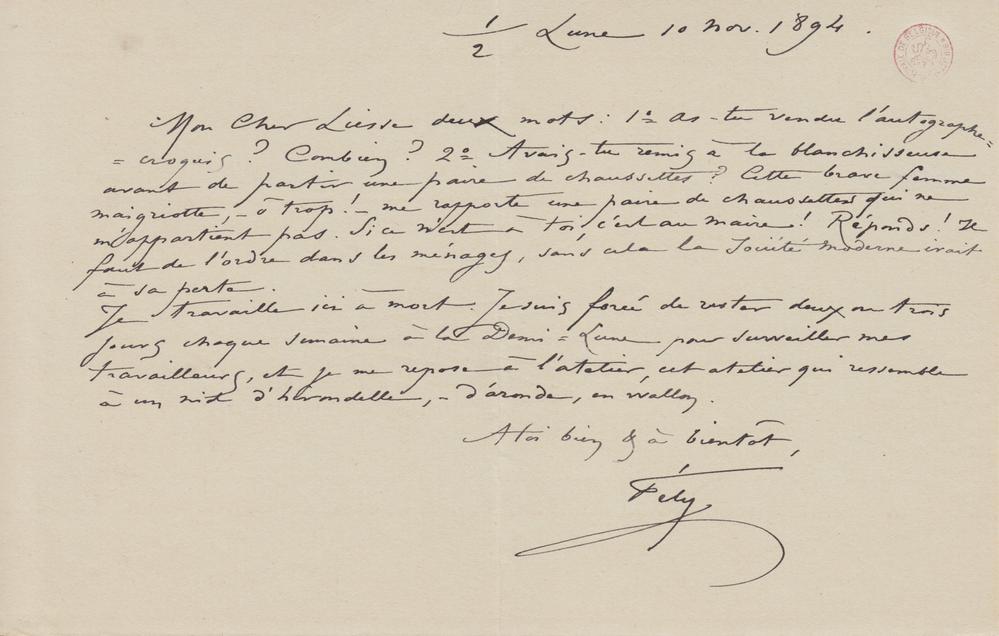 1/2 Lune 10 Nov. 1894.
Mon Cher Liesse deux mots : 1º= As-tu vendu l'autographe=
=croquis ? Combien ? 2º= Avais-tu remis à la blanchisseuse
avant de partir une paire de chaussettes ? Cette brave femme
maigriotte, - ô trop ! - me rapporte une paire de chaussettes qui ne
m'appartient pas. Si ce n'est à toi c'est au maire ! Réponds ! Il
faut de l'ordre dans les ménages, sans cela la Société moderne irait
à sa perte.
Je travaille ici à mort. Je suis forcé de rester deux ou trois
jours chaque semaine à la Demi=Lune pour surveiller mes
travailleurs, et je me repose à l'atelier, cet atelier qui ressemble
à un nid d'hirondelle, - d'aronde, en wallon.
A toi bien & à bientôt,
Fély